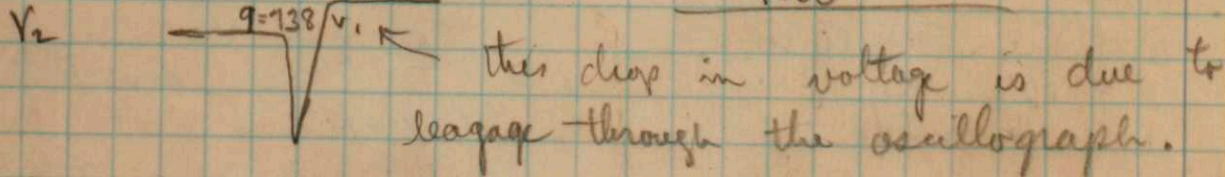 V₂ q=738 V₁ this drop in voltage is due to
leagage through the oscillograph.